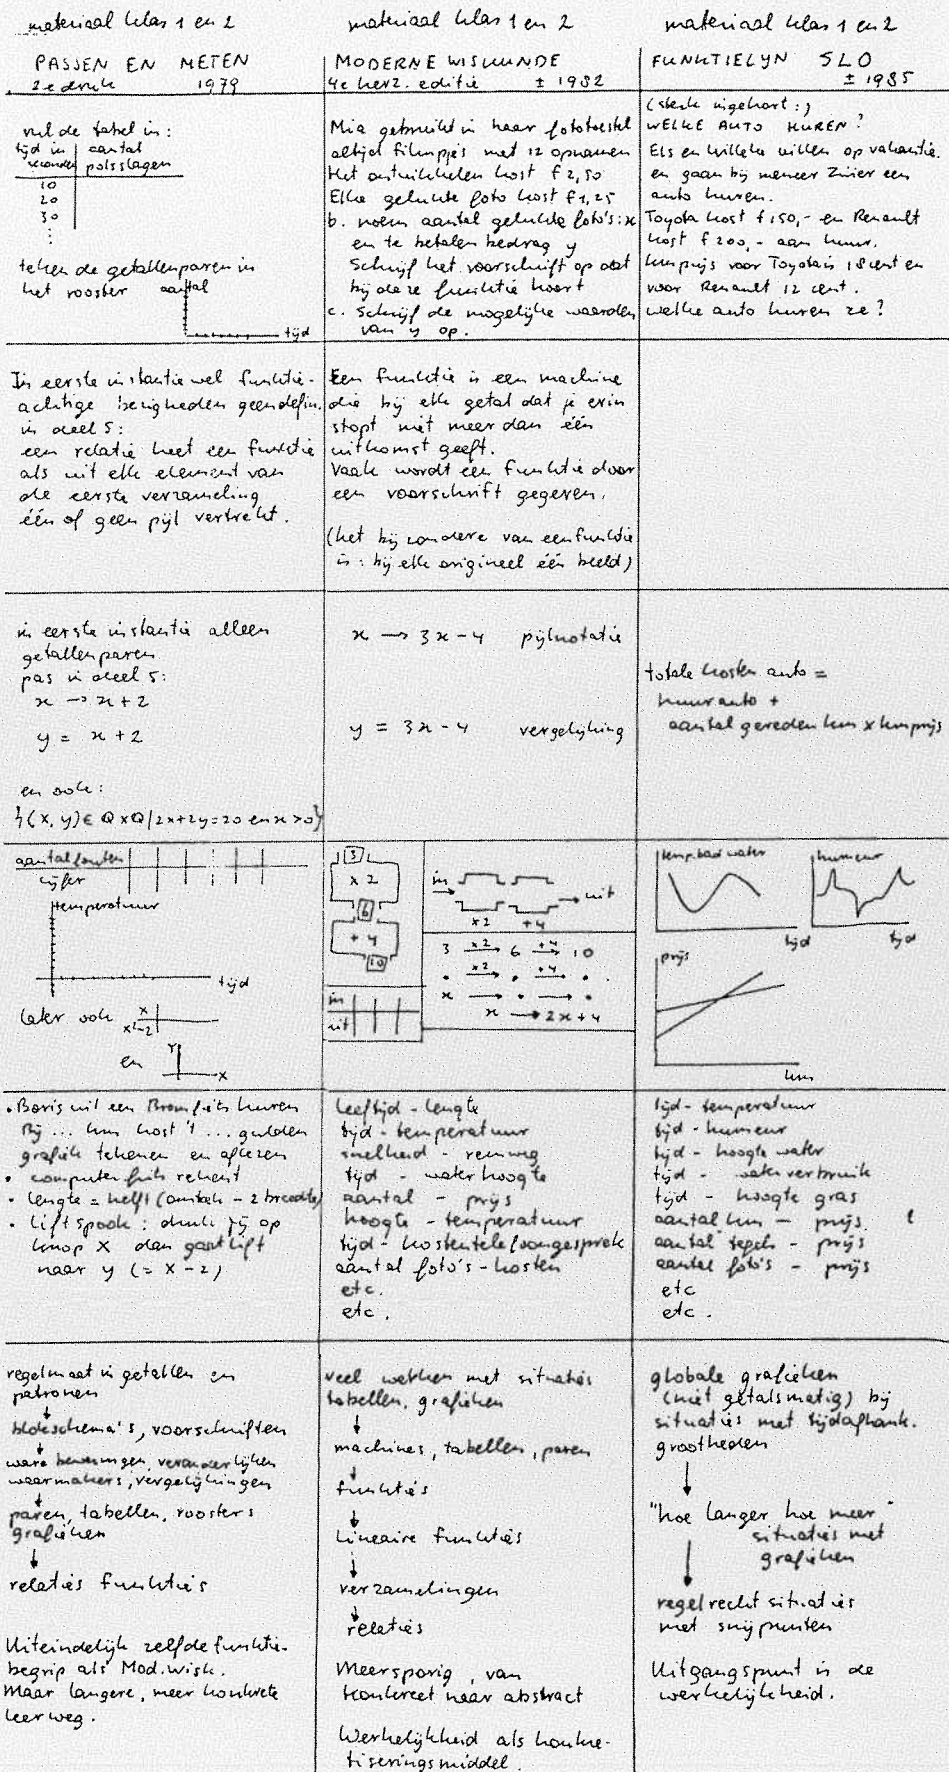 materiaal klas 1 en 2
PASSEN EN METEN
2e druk 1979
vul de tabel in:
tijd in seconden | aantal polsslagen
10
20
30
⋮
teken de getallenparen in
het rooster
aantal
tijd
In eerste instantie wel funktie-
achtige bezigheden geen defin.
in deel 5:
een relatie heet een funktie
als uit elk element van
de eerste verzameling
één of geen pijl vertrekt.
in eerste instantie alleen
getallenparen
pas in deel 5:
x → x + 2
y = x + 2
en ook:
{(x, y) ∈ Q x Q | 2x+2y=20 en x > 0}
aantal fouten
cijfer
temperatuur
tijd
later ook
x
x²-2
en
Y
X
• Boris wil een Bromfiets huren
Bij ... km kost 't ... gulden
grafiek tekenen en aflezen
• computer fiets rekent
• lengte = helft (omtrek - 2 breedte)
• liftspook: druk jij op
knop X dan gaat lift
naar y (= x - 2)
regelmaat in getallen en
patronen
↓
blokschema's, voorschriften
↓
ware beweringen, veranderlijken
waarmakers, vergelijkingen
↓
paren, tabellen, roosters
grafieken
↓
relaties funkties
Uiteindelijk zelfde funktie-
begrip als Mod. wisk.
Maar langere, meer konkrete
leerweg.
materiaal klas 1 en 2
MODERNE WISKUNDE
4e herz. editie ± 1982
Mia gebruikt in haar fototoestel
altijd filmpjes met 12 opnamen
Het ontwikkelen kost f 2,50
Elke gelukte foto kost f 1,25
b. noem aantal gelukte foto's: x
en te betalen bedrag y
Schrijf het voorschrift op dat
bij deze funktie hoort
c. Schrijf de mogelijke waarden
van y op.
Een funktie is een machine
die bij elk getal dat je erin
stopt niet meer dan één
uitkomst geeft.
Vaak wordt een funktie door
een voorschrift gegeven.
(het bijzondere van een funktie
is: bij elk origineel één beeld)
x → 3x - 4 pijlnotatie
y = 3x - 4 vergelijking
3
x 2
6
+ 4
10
in
uit
in → uit
x2 +4
3 x2→ 6 +4→ 10
• x2→ • +4→ •
x → • → •
x → 2x + 4
leeftijd - lengte
tijd - temperatuur
snelheid - remweg
tijd - waterhoogte
aantal - prijs
hoogte - temperatuur
tijd - kosten telefoongesprek
aantal foto's - kosten
etc.
etc.
veel werken met situaties
tabellen, grafieken
↓
machines, tabellen, paren
↓
funkties
↓
Lineaire funkties
↓
verzamelingen
↓
relaties
Meersporig, van
konkreet naar abstract
Werkelijkheid als konkre-
tiseringsmiddel.
materiaal klas 1 en 2
FUNKTIELYN SLO
± 1985
(sterk ingekort:)
WELKE AUTO HUREN?
Els en Willeke willen op vakantie.
en gaan bij meneer Zwier een
auto huren.
Toyota kost f 150,- en Renault
kost f 200,- aan huur.
kmprijs voor Toyota is 18 cent en
voor Renault 12 cent.
welke auto huren ze?
totale kosten auto =
huur auto +
aantal gereden km x kmprijs
temp. badwater
tijd
humeur
tijd
prijs
km
tijd - temperatuur
tijd - humeur
tijd - hoogte water
tijd - waterverbruik
tijd - hoogte gras
aantal km - prijs
aantal tegels - prijs
aantal foto's - prijs
etc
etc.
globale grafieken
(niet getalsmatig) bij
situaties met tijdafhank.
grootheden
↓
"hoe langer hoe meer"
situaties met
grafieken
↓
regelrecht situaties
met snijpunten
Uitgangspunt is de
werkelijkheid.